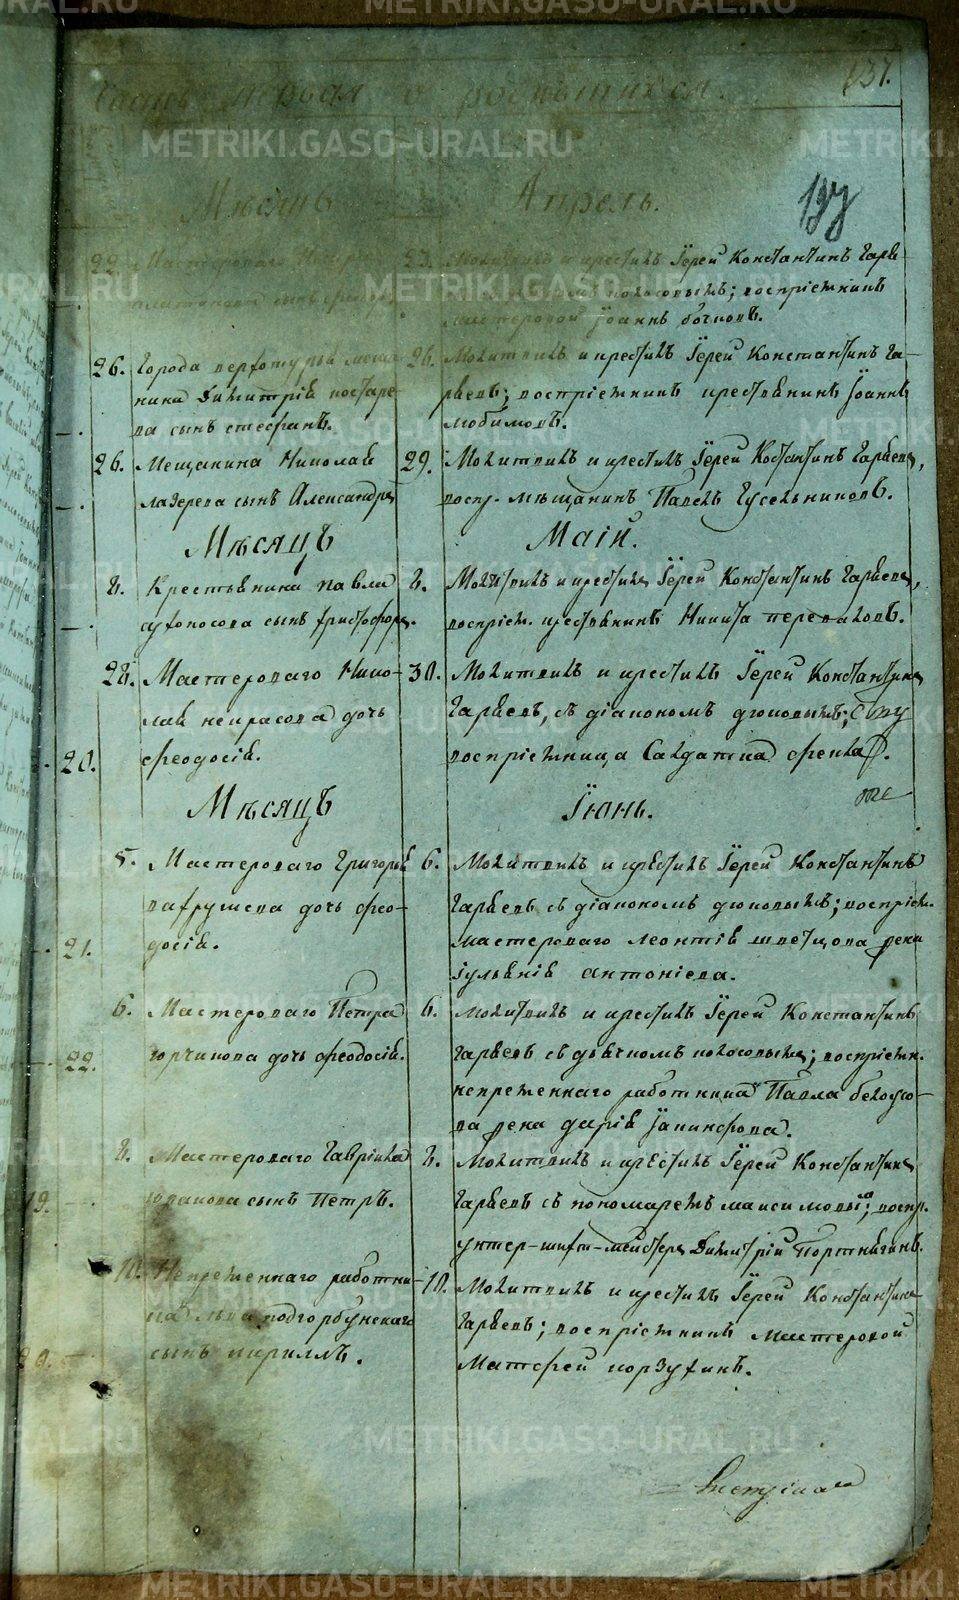 METRIKI.GASO-URAL.RU
137.
Часть первая о родившихся.
Мѣсяцъ Апрель.
197
22. Мастероваго
23. Молитвилъ и крестилъ Іерей Константинъ Гаря-
сынъ
воспріемникъ
мастеровой Іоаннъ бочковъ.
26. Города верхотурья меща
нина Димитрія
ва сынъ стефанъ.
26. Молитвилъ и крестилъ Іерей Константинъ Га-
ряевъ; воспріемникъ крестьянинъ Іоаннъ
любимовъ.
26. Мещанина Николая
лазерева сынъ Александръ
29. Молитвилъ и крестилъ Іерей Костантинъ Гаряевъ,
воспр. мѣщанинъ Павелъ Гусельниковъ.
Мѣсяцъ Маій.
8. Крестьянина павла
сухоносова сынъ христофоръ.
8. Молитвилъ и крестилъ Іерей Константинъ Гаряевъ,
воспріем. крестьянинъ Никита переваловъ.
20.
28. Мастероваго Нико-
лая некрасова дочь
феодосія.
30. Молитвилъ и крестилъ Іерей Константинъ
Гаряевъ, съ діакономъ дюковымъ;
воспріемница Салдатка фекла.
Мѣсяцъ Іюнь.
21.
5. Мастероваго Григорья
вахрушева дочь фео-
досія.
6. Молитвилъ и крестилъ Іерей Константинъ
Гаряевъ съ діакономъ дюковымъ; воспріем.
мастероваго леонтія швецова жена
іульянія антоніева.
22.
6. Мастероваго Петра
дочь феодосія.
6. Молитвилъ и крестилъ Іерей Константинъ
Гаряевъ съ дьячкомъ; воспріемн.
непременнаго работника Павла белоусо-
ва жена дарія
19.
8. Мастероваго Гавріила
юдакова сынъ Петръ.
8. Молитвилъ и крестилъ Іерей Константинъ
Гаряевъ съ пономаремъ; воспр.
унтер-шихт-мейстеръ Димитрій Портнягинъ.
20.
10. Непременнаго работни-
ка льва подгорбунскаго
сынъ кириллъ.
10. Молитвилъ и крестилъ Іерей Константинъ
Гаряевъ; воспріемникъ мастеровой
Матфей корзухинъ.